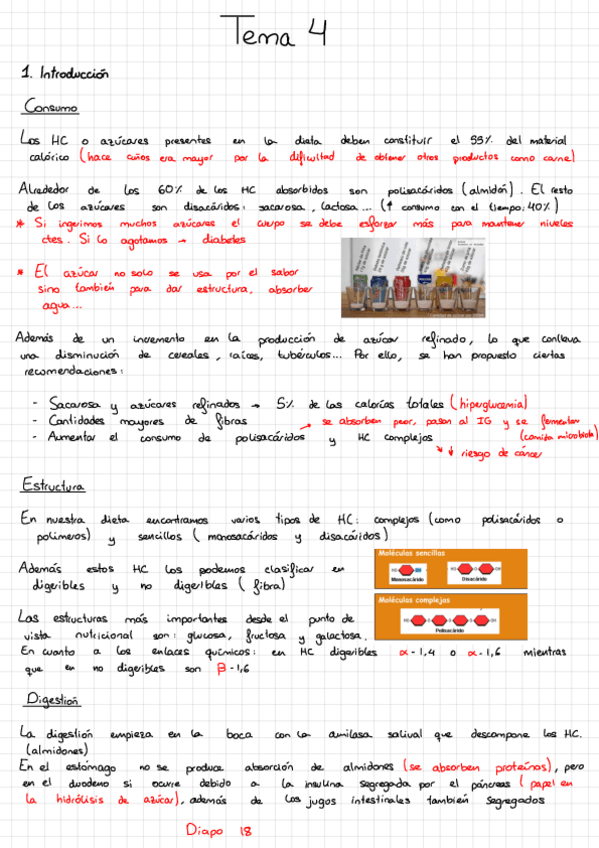 Tema 4
1. Introducción
Consumo
Los HC o azúcares presentes en la dieta deben constituir el 55% del material
calórico (hace años era mayor por la dificultad de obtener otros productos como carne)
Alrededor de los 60% de los HC absorbidos son polisacáridos (almidón). El resto
de los azúcares son disacáridos: sacarosa, lactosa... (↑ consumo con el tiempo; 40%)
* Si ingerimos muchos azúcares el cuerpo se debe esforzar más para mantener niveles
ctes. Si lo agotamos → diabetes
* El azúcar no solo se usa por el sabor
sino también para dar estructura, absorber
agua...
Además de un incremento en la producción de azúcar refinado, lo que conlleva
una disminución de cereales, raíces, tubérculos... Por ello, se han propuesto ciertas
recomendaciones:
- Sacarosa y azúcares refinados → 5% de las calorías totales (hiperglucemia)
- Cantidades mayores de fibras → se absorben peor, pasan al IG y se fermentan
- Aumentar el consumo de polisacáridos y HC complejos (comida microbiota)
↓↓ riesgo de cáncer
Estructura
En nuestra dieta encontramos varios tipos de HC: complejos (como polisacáridos o
polímeros) y sencillos (monosacáridos y disacáridos)
Además estos HC los podemos clasificar en
digeribles y no digeribles (fibra)
Moléculas sencillas
Monosacárido
Disacárido
Moléculas complejas
Polisacárido
Las estructuras más importantes desde el punto de
vista nutricional son: glucosa, fructosa y galactosa.
En cuanto a los enlaces químicos: en HC digeribles α-1,4 o α-1,6 mientras
que en no digeribles son β-1,6
Digestión
La digestión empieza en la boca con la amilasa salival que descompone los HC.
(almidones)
En el estómago no se produce absorción de almidones (se absorben proteínas), pero
en el duodeno si ocurre debido a la insulina segregada por el páncreas (papel en
la hidrólisis de azúcar), además de los jugos intestinales también segregados
Diapo 18